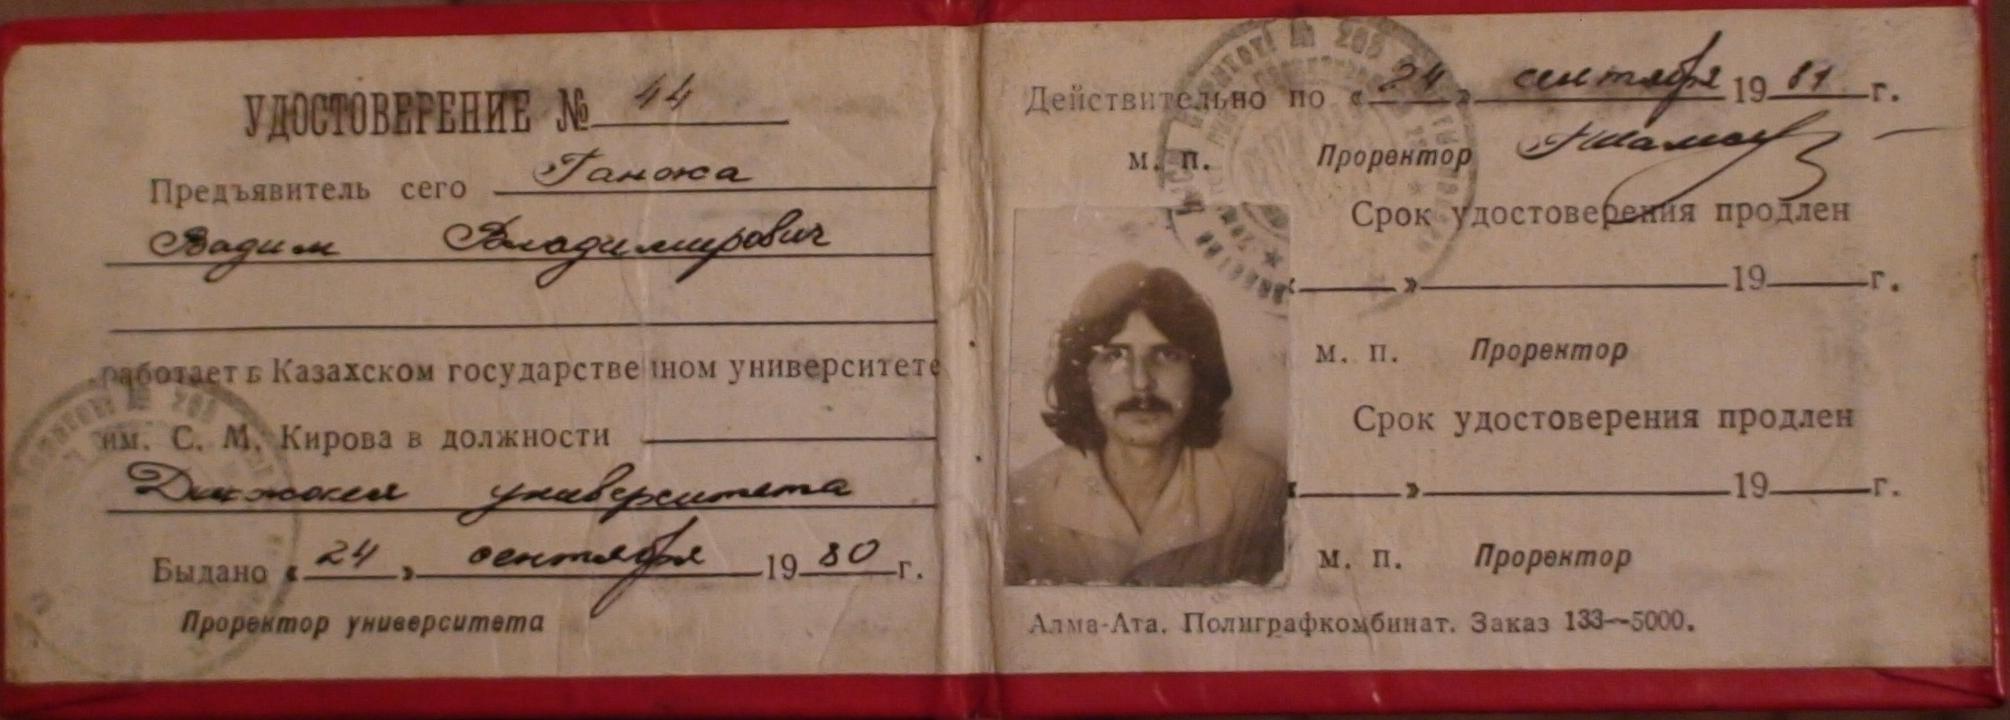 УДОСТОВЕРЕНИЕ № 44
Предъявитель сего Ганжа
Вадим Владимирович
работает в Казахском государственном университете
им. С. М. Кирова в должности
университета
Выдано «24» сентября 1980 г.
Проректор университета
Действительно по «24» сентября 1981 г.
м. п. Проректор
Срок удостоверения продлен
« » 19 г.
м. п. Проректор
Срок удостоверения продлен
« » 19 г.
м. п. Проректор
Алма-Ата. Полиграфкомбинат. Заказ 133—5000.